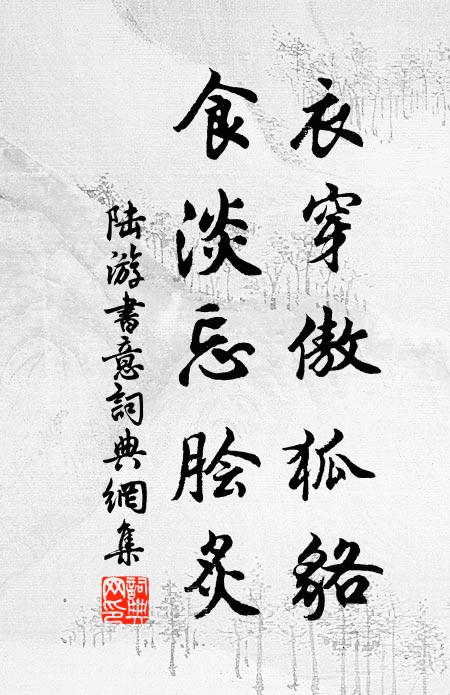 衣穿傲狐貉
食淡忘膾炙
陆游書意詞典網集
詞典
网印